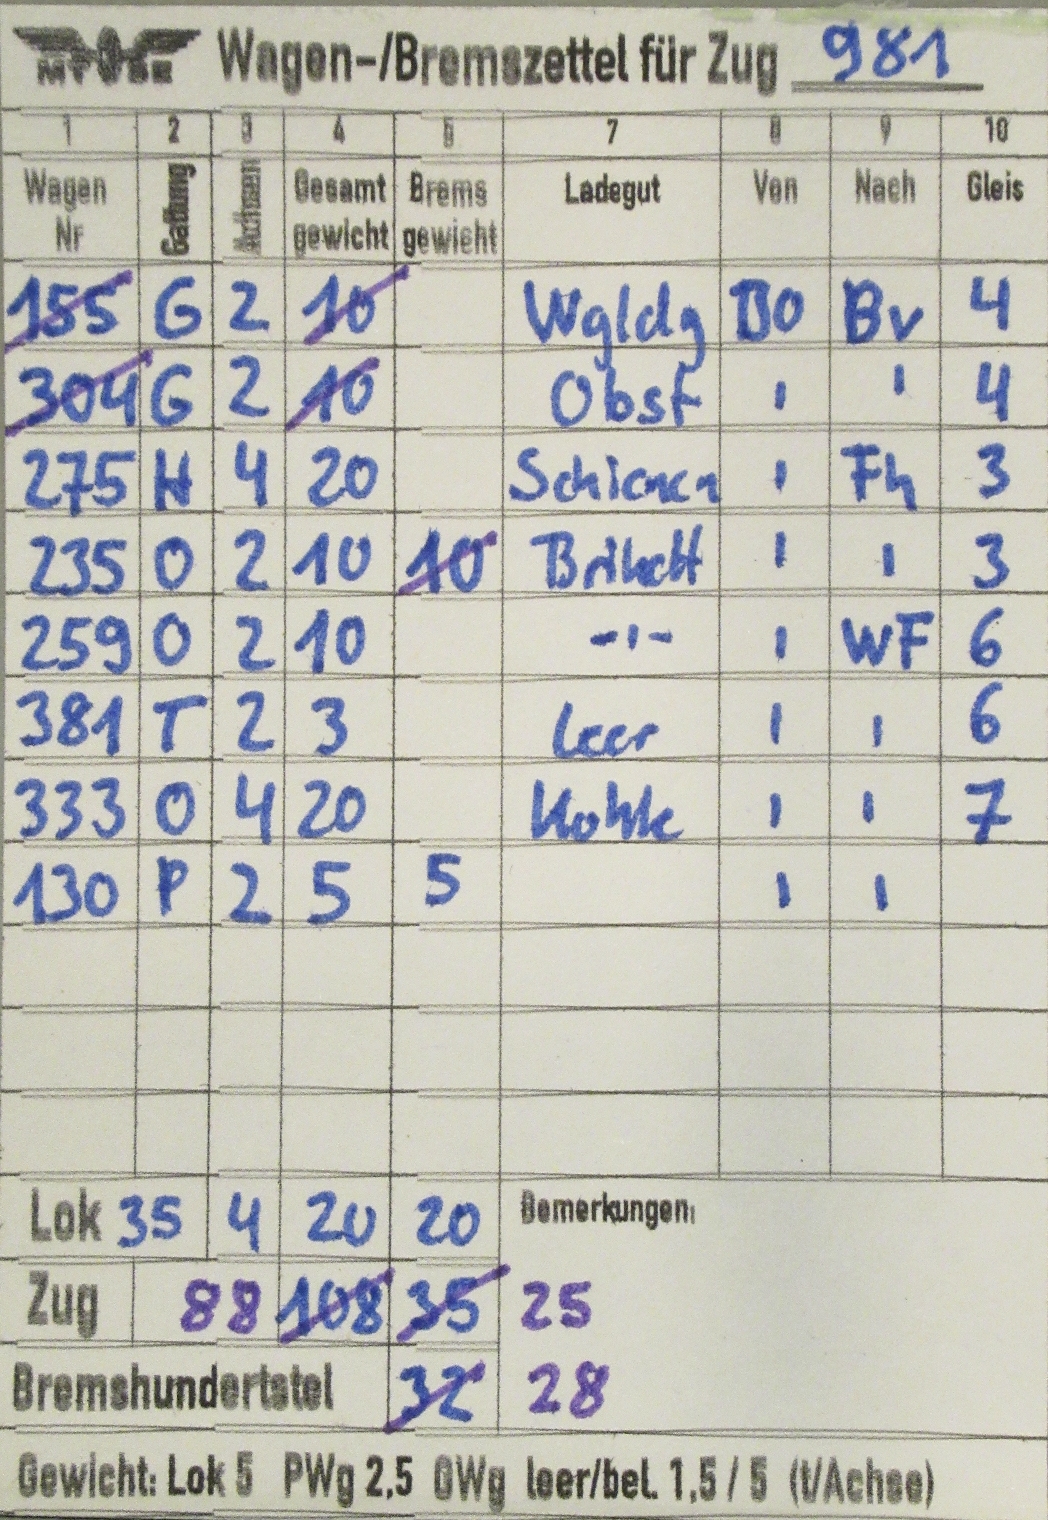 Wagen-/Bremszettel für Zug 981
1 2 3 4 5 7 8 9 10
Wagen Nr Gattung Achsen Gesamt gewicht Brems gewicht Ladegut Von Nach Gleis
155 G 2 10 Wgldg BO Bv 4
304 G 2 10 Obst ı ı 4
275 H 4 20 Schienen ı Fh 3
235 O 2 10 10 Brikett ı ı 3
259 O 2 10 -ı- ı WF 6
381 T 2 3 leer ı ı 6
333 O 4 20 Kohle ı ı 7
130 P 2 5 5 ı ı
Lok 35 4 20 20 Bemerkungen:
Zug 88 108 35 25
Bremshundertstel 32 28
Gewicht: Lok 5 PWg 2,5 GWg leer/bel. 1,5 / 5 (t/Achse)